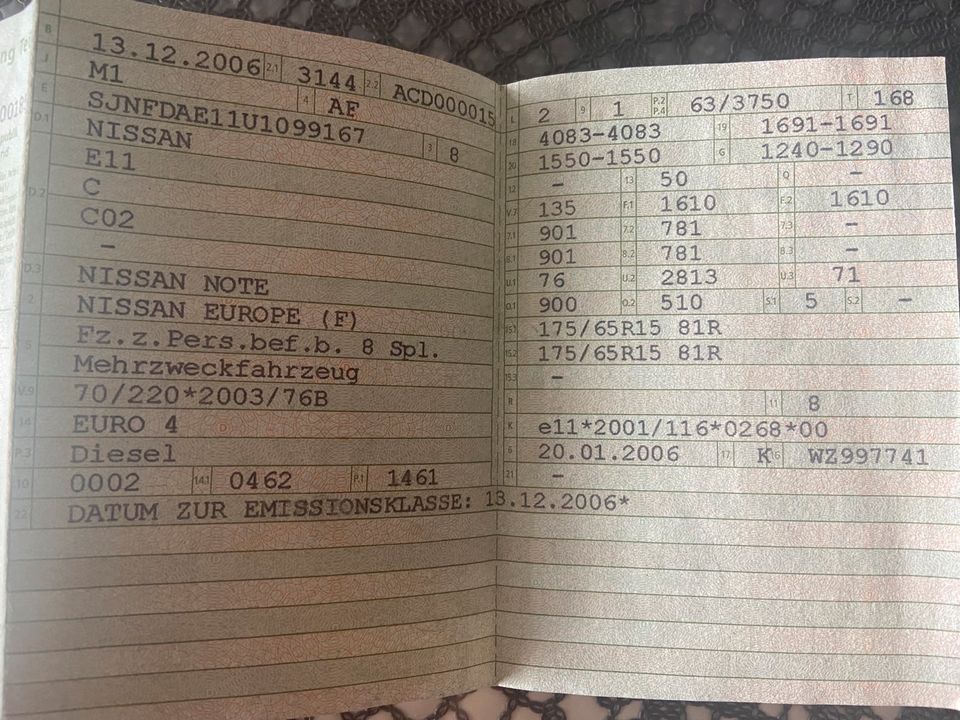 B 13.12.2006 2.1 3144 2.2 ACD000015
J M1 4 AF
E SJNFDAE11U1099167 3 8
D.1 NISSAN
E11
D.2 C
C02
–
D.3 NISSAN NOTE
2 NISSAN EUROPE (F)
5 Fz.z.Pers.bef.b. 8 Spl.
Mehrzweckfahrzeug
V.9 70/220*2003/76B
14 EURO 4
P.3 Diesel
10 0002 14.1 0462 P.1 1461
22 DATUM ZUR EMISSIONSKLASSE: 13.12.2006*
L 2 9 1 P.2 P.4 63/3750 T 168
18 4083-4083 19 1691-1691
20 1550-1550 G 1240-1290
12 – 13 50 Q –
V.7 135 F.1 1610 F.2 1610
7.1 901 7.2 781 7.3 –
8.1 901 8.2 781 8.3 –
U.1 76 U.2 2813 U.3 71
O.1 900 O.2 510 S.1 5 S.2 –
15.1 175/65R15 81R
15.2 175/65R15 81R
15.3 –
R 11 8
K e11*2001/116*0268*00
6 20.01.2006 17 K 16 WZ997741
21 –